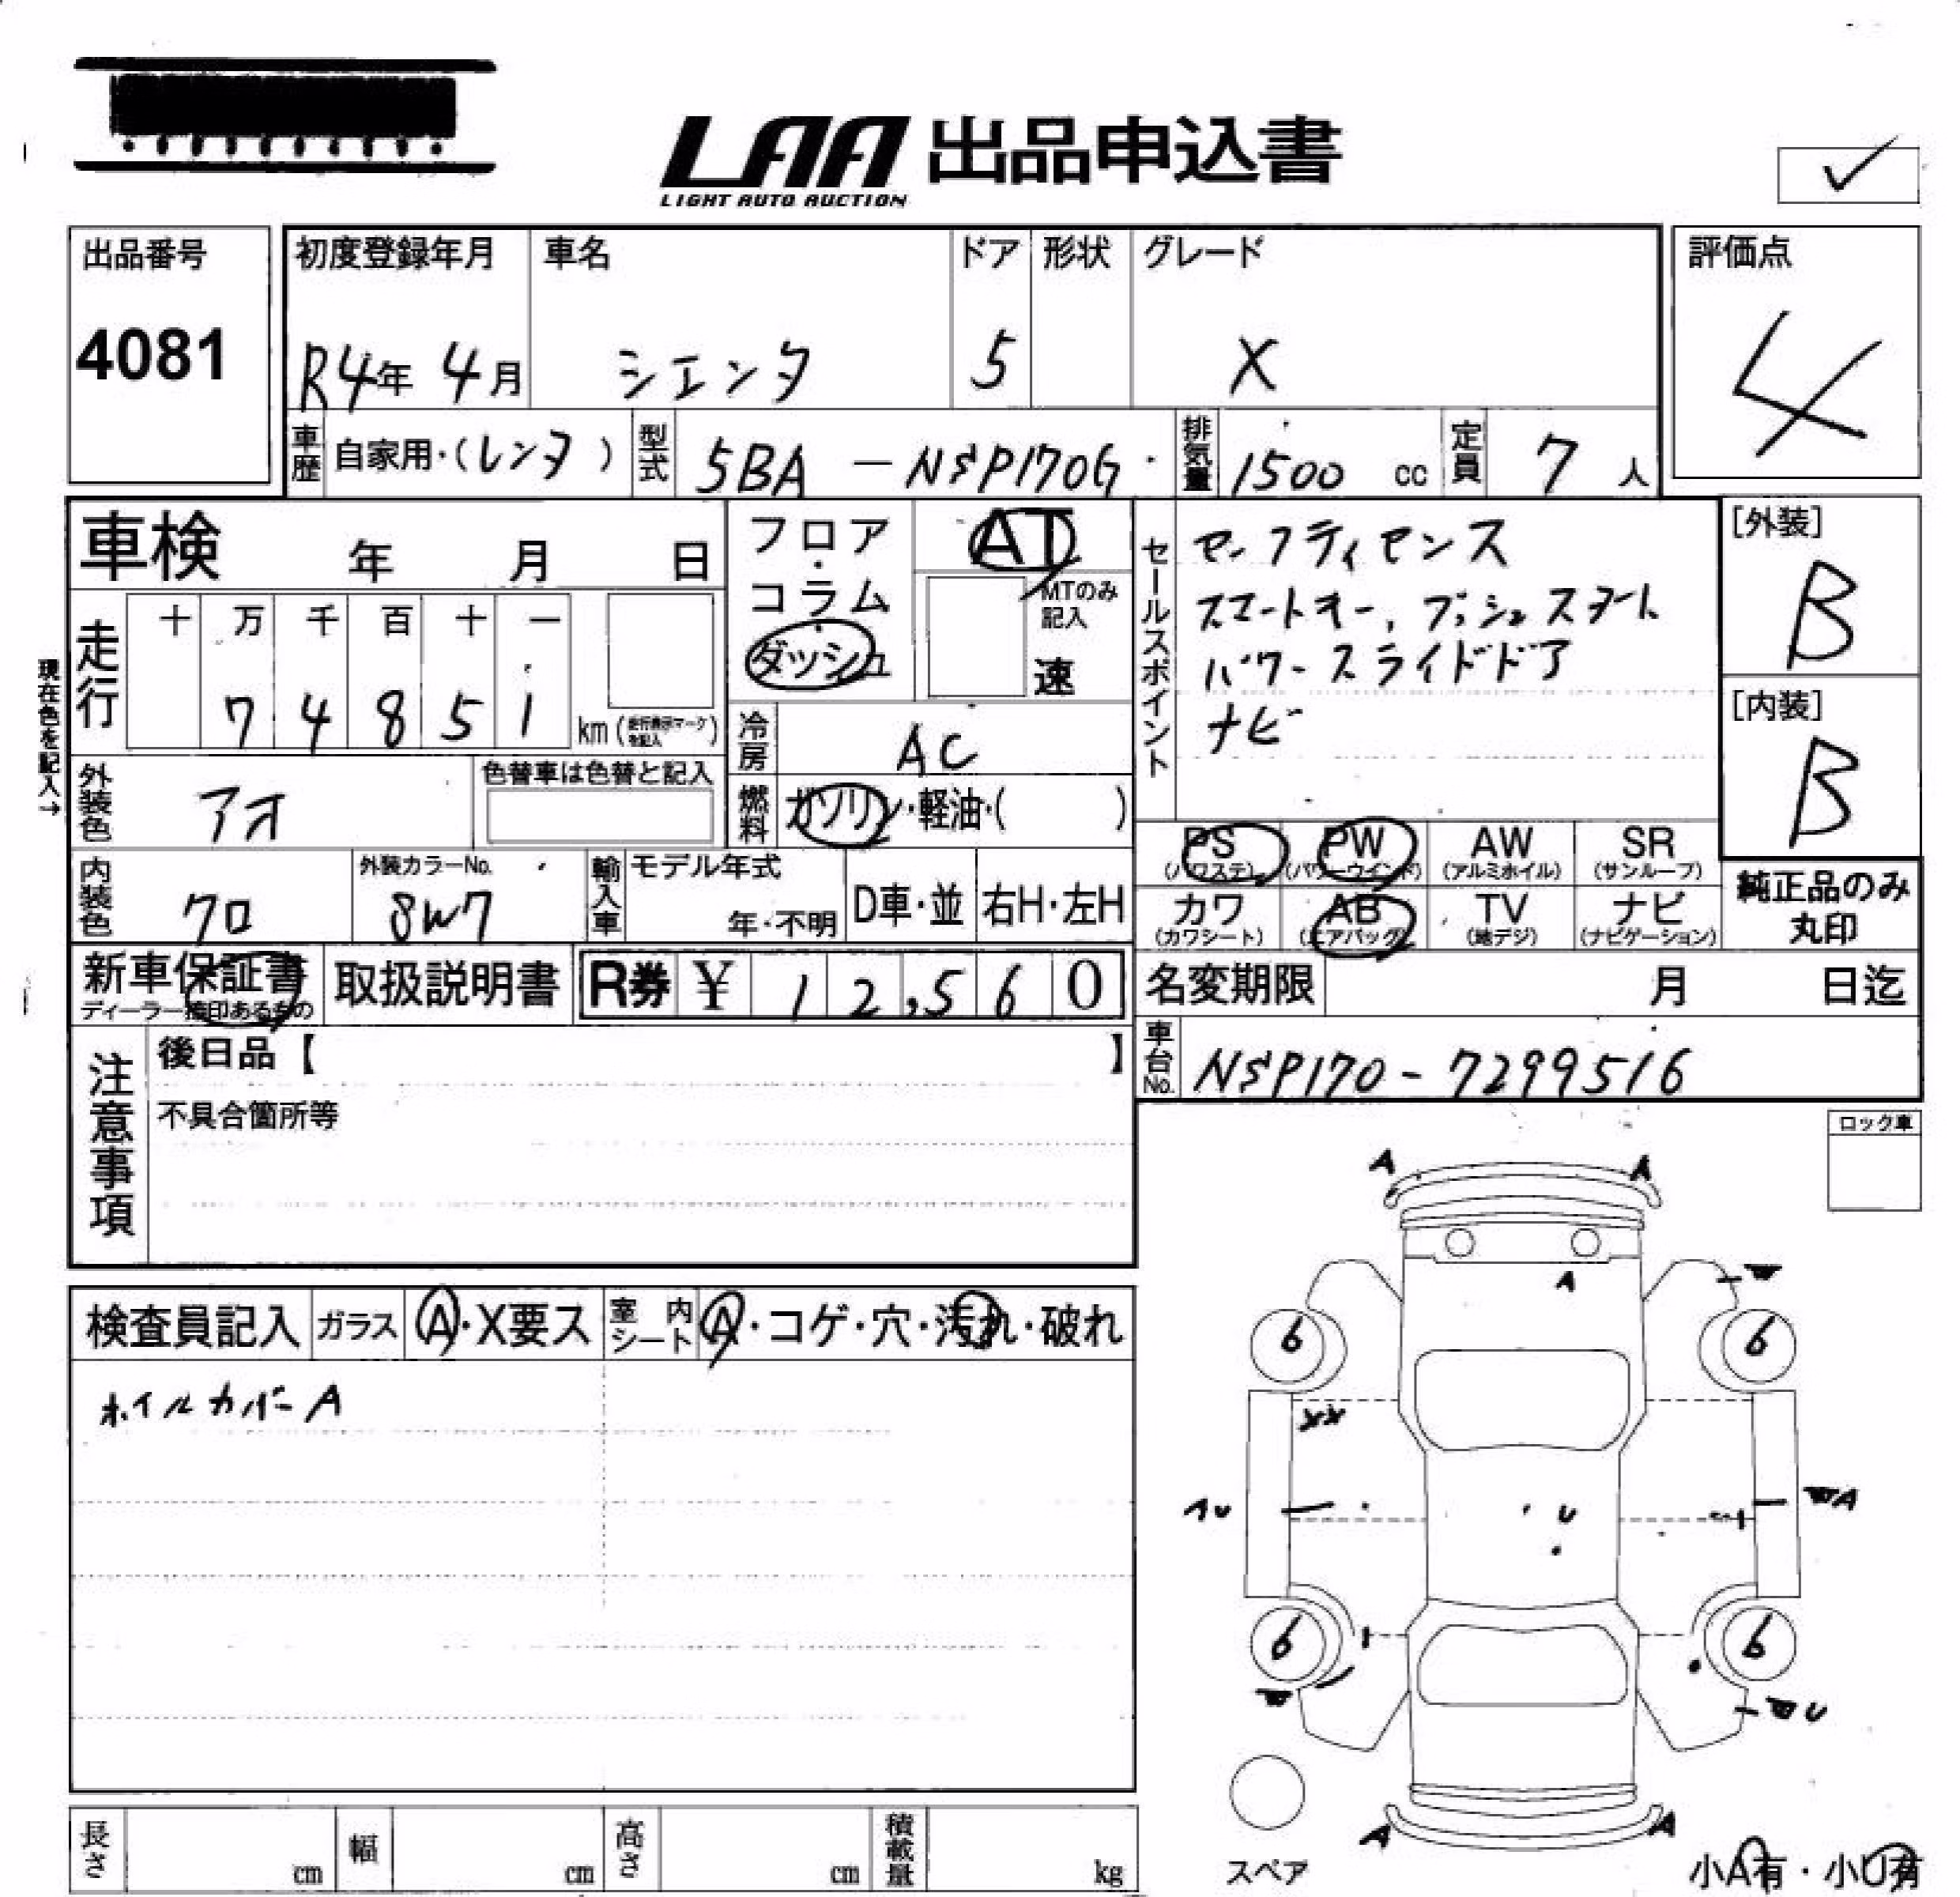 LAA 出品申込書
LIGHT AUTO AUCTION
✓
出品番号
4081
初度登録年月 車名 ドア 形状 グレード
R4年 4月 シエンタ 5 X
評価点
4
車歴 自家用・(レンタ) 型式 5BA-NSP170G 排気量 1500 cc 定員 7 人
車検 年 月 日
フロア・コラム・ダッシュ
AT
MTのみ記入
速
セールスポイント
セーフティセンス
スマートキー, プッシュスタート
パワースライドドア
ナビ
[外装]
B
[内装]
B
現在色を記入→
走行 十 万 千 百 十 一
7 4 8 5 1 km (走行表示マークを記入)
冷房 AC
外装色 アオ 色替車は色替と記入
燃料 ガソリン・軽油・( )
PS (パワステ) PW (パワーウインド) AW (アルミホイル) SR (サンルーフ)
カワ (カワシート) AB (エアバック) TV (地デジ) ナビ (ナビゲーション)
純正品のみ丸印
内装色 クロ 外装カラーNo. 8W7 輸入車 モデル年式 年・不明 D車・並 右H・左H
新車保証書 取扱説明書 R券 ¥ 12,560
ディーラー捺印あるもの
名変期限 月 日迄
車台No. NSP170-7299516
注意事項
後日品【 】
不具合箇所等
ロック車
検査員記入 ガラス A・X要ス 室内シート A・コゲ・穴・汚れ・破れ
ホイルカバーA
A A
A
6 6
XX
U
A
U
6 6
U
A A
スペア
長さ cm 幅 cm 高さ cm 積載量 kg
小A有・小U有